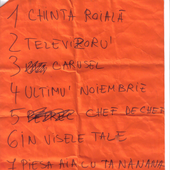 1 CHINTA ROIALĂ
2 TELEVIZORU'
3 CARUSEL
4 ULTIMU' NOIEMBRIE
5 CHEF DE CHEF
6 IN VISELE TALE
7 PIESA AIA CU TANANANA